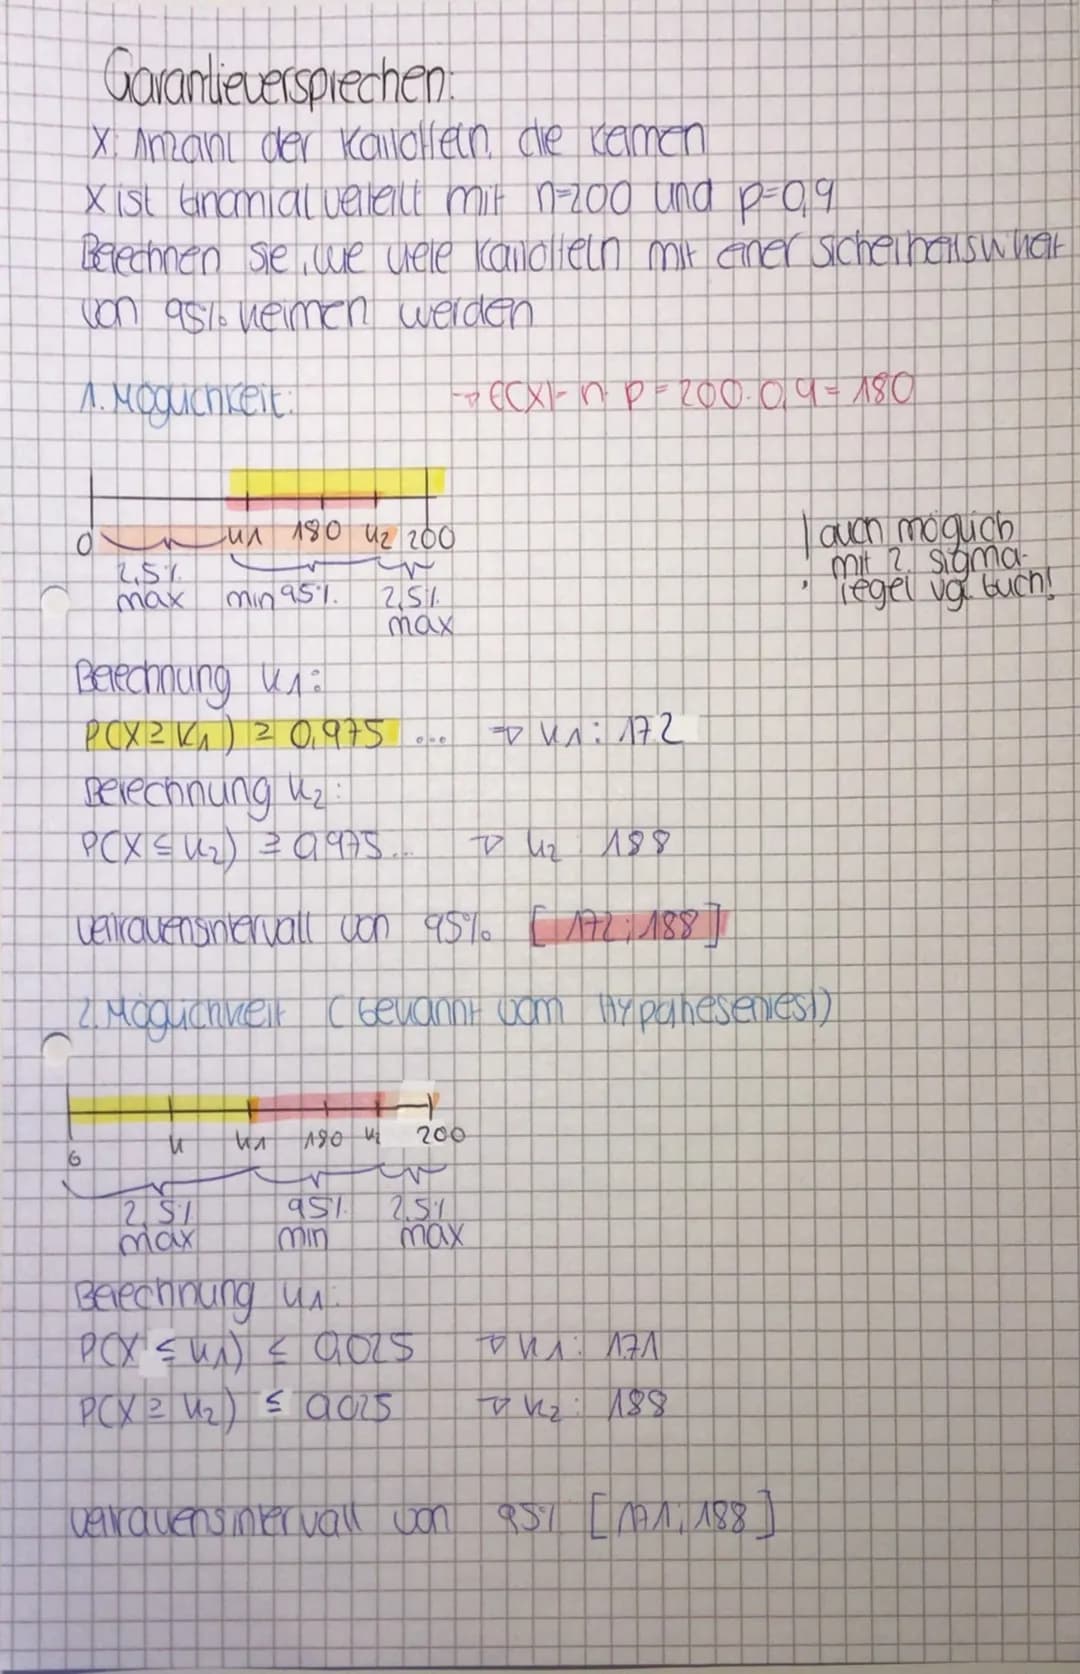 Garantieversprechen:
X: Anzahl der Kartoffeln, die keimen
X ist binomialverteilt mit n=200 und p=0,9
Berechnen sie, wie viele Kartoffeln mit einer Sicherheitswkeit
von 95% keimen werden
1. Möglichkeit: → E(X)= n·p = 200·0,9 = 180
0 k1 180 k2 200
2,5% max min 95% 2,5% max
! auch möglich
mit 2. sigma-
regel vgl. buch!
Berechnung k1:
P(X ≥ k1) ≥ 0,975 ... ⇒ k1: 172
Berechnung k2:
P(X ≤ k2) ≥ 0,975... ⇒ k2 188
Vertrauensintervall von 95% [172; 188]
2. Möglichkeit (bekannt vom Hypothesentest)
0 k k1 180 k2 200
2,5% max 95% min 2,5% max
Berechnung k1:
P(X ≤ k1) ≤ 0,025 ⇒ k1: 171
P(X ≥ k2) ≤ 0,025 ⇒ k2: 188
Vertrauensintervall von 95% [171; 188]